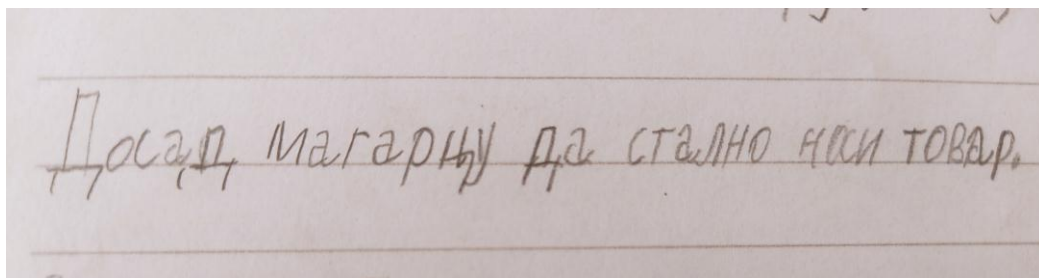 Досад магарцу да стално носи товар.